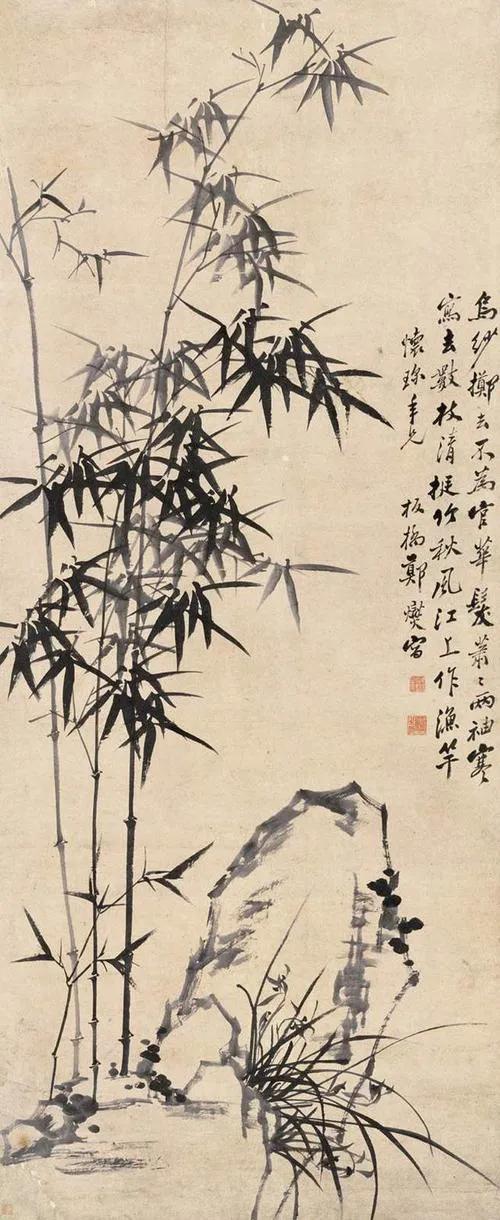 烏紗擲去不為官華髮蕭〻兩袖寒
寫去數枝清挺竹秋風江上作漁竿
懷珎年兄 板橋鄭燮寫